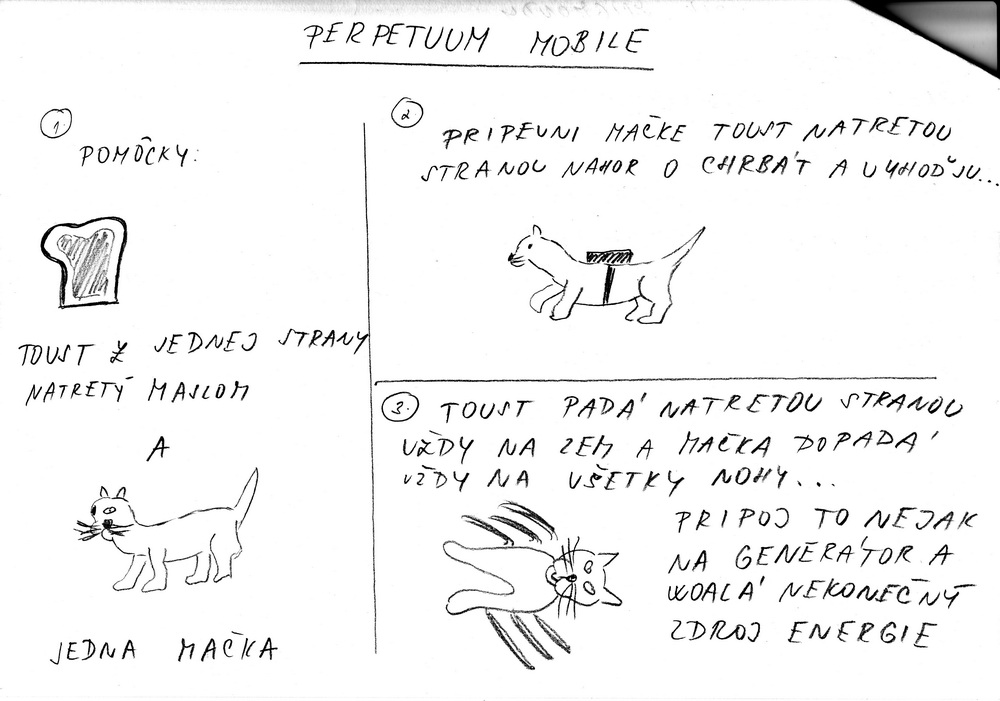 PERPETUUM MOBILE
1.
POMÔCKY:
TOUST Z JEDNEJ STRANY
NATRETÝ MASLOM
A
JEDNA MAČKA
2.
PRIPEVNI MAČKE TOUST NATRETOU
STRANOU NAHOR O CHRBÁT A VYHOĎ JU...
3. TOUST PADÁ NATRETOU STRANOU
VŽDY NA ZEM A MAČKA DOPADÁ
VŽDY NA VŠETKY NOHY...
PRIPOJ TO NEJAK
NA GENERÁTOR A
WOALÁ NEKONEČNÝ
ZDROJ ENERGIE